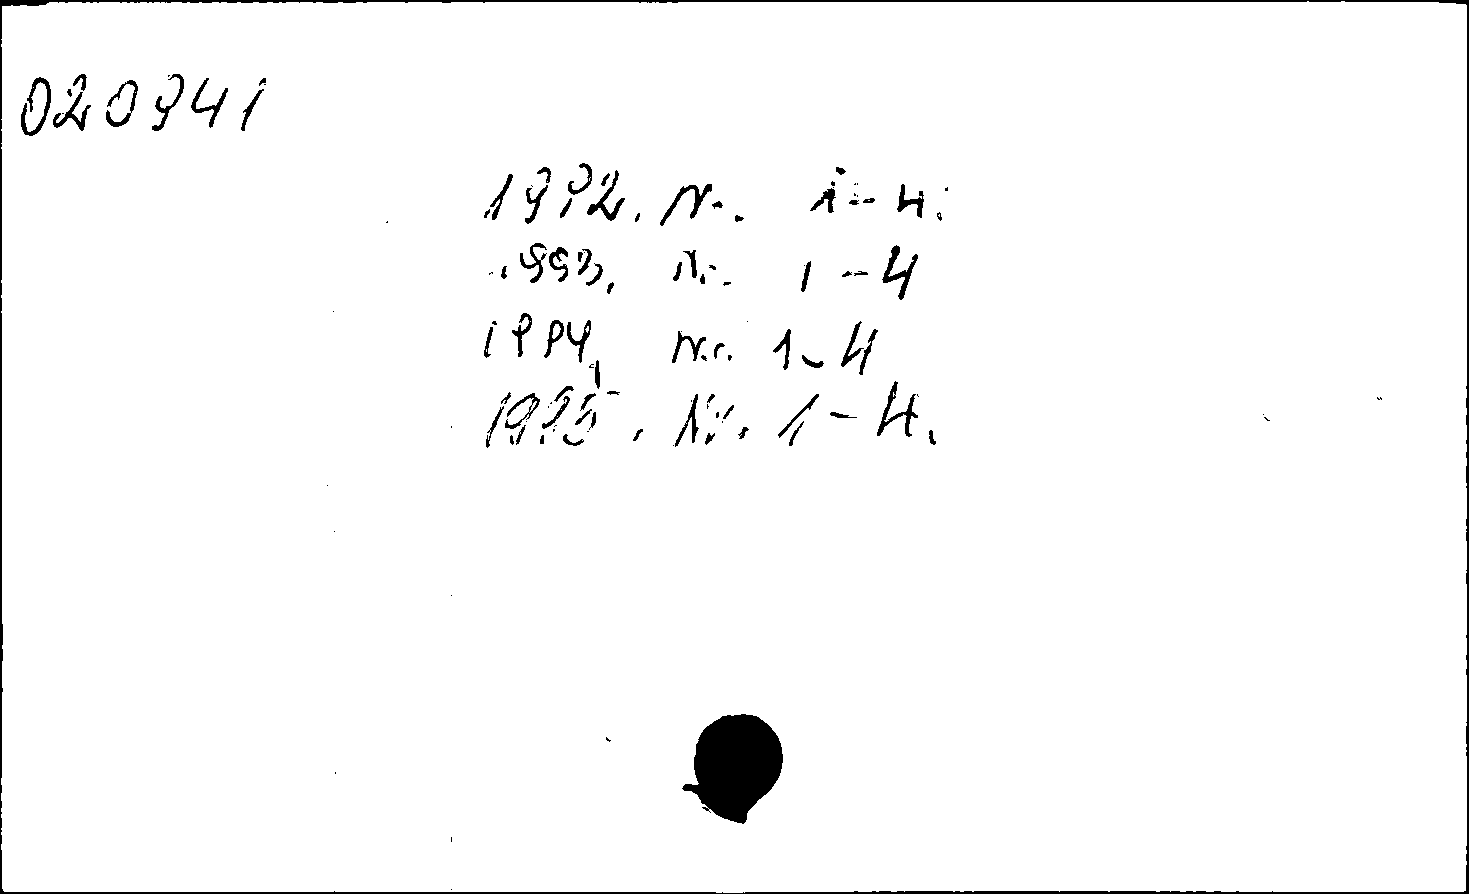 020941
1992. Nr. 1-4.
1993. Nr. 1-4
1994, Nr. 1-4
1995. Nr. 1-4.